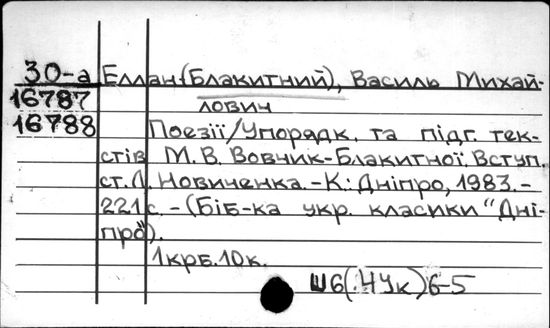 30-а Еллан-(Блакитний), Василь Михай-
16787 лович
16788 Поезії/Упорядк. та підг. тек-
стів М. В. Вовчик-Блакитної. Вступ.
ст. Л. Новиченка. -К.: Дніпро, 1983. -
221 с. - (Біб-ка укр. класики "Дні-
про").
1крб.10к.
Ш6(.4Ук)6-5